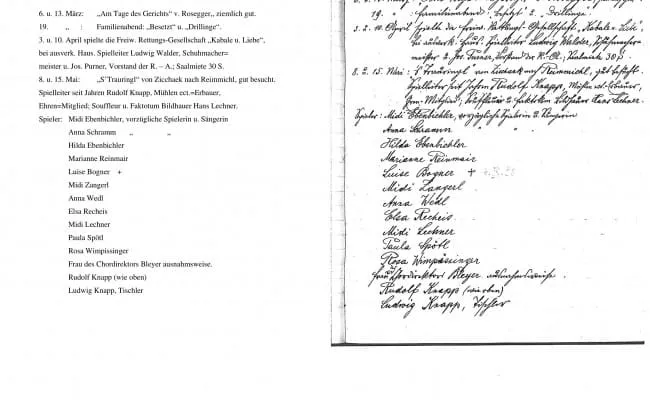 6. u. 13. März: „Am Tage des Gerichts“ v. Rosegger,, ziemlich gut.
19. „ : Familienabend: „Besetzt“ u. „Drillinge“.
3. u. 10. April spielte die Freiw. Rettungs-Gesellschaft „Kabale u. Liebe“,
bei ausverk. Haus. Spielleiter Ludwig Walder, Schuhmacher=
meister u. Jos. Purner, Vorstand der R. – A.; Saalmiete 30 S.
8. u. 15. Mai: „S’Trauringl“ von Zicchaek nach Reimmichl, gut besucht.
Spielleiter seit Jahren Rudolf Knapp, Mühlen ect.=Erbauer,
Ehren=Mitglied; Souffleur u. Faktotum Bildhauer Hans Lechner.
Spieler: Midi Ebenbichler, vorzügliche Spielerin u. Sängerin
Anna Schramm „ „
Hilda Ebenbichler
Marianne Reinmair
Luise Bogner +
Midi Zangerl
Anna Wedl
Elsa Recheis
Midi Lechner
Paula Spötl
Rosa Wimpissinger
Frau des Chordirektors Bleyer ausnahmsweise.
Rudolf Knapp (wie oben)
Ludwig Knapp, Tischler
19. Familienabend: „Besetzt“ u. „Drillinge“
3. u. 10. April spielte die Freiw. Rettungs-Gesellschaft „Kabale u. Liebe“,
bei ausverk. Haus. Spielleiter Ludwig Walder, Schuhmacher-
meister u. Jos. Purner, Vorstand der R.-A.; Saalmiete 30 S.
8. u. 15. Mai: Trauringl von nach Reimmichl, gut besucht.
Spielleiter seit Jahren Rudolf Knapp, Mühlen ect.-Erbauer,
Ehren-Mitglied, Souffleur u. Faktotum Bildhauer Hans Lechner.
Spieler: Midi Ebenbichler, vorzügliche Spielerin u. Sängerin
Anna Schramm " "
Hilda Ebenbichler
Marianne Reinmair
Luise Bogner +
Midi Zangerl
Anna Wedl
Elsa Recheis
Midi Lechner
Paula Spötl
Rosa Wimpissinger
Frau Chordirektor Bleyer ausnahmsweise.
Rudolf Knapp (wie oben)
Ludwig Knapp, Tischler